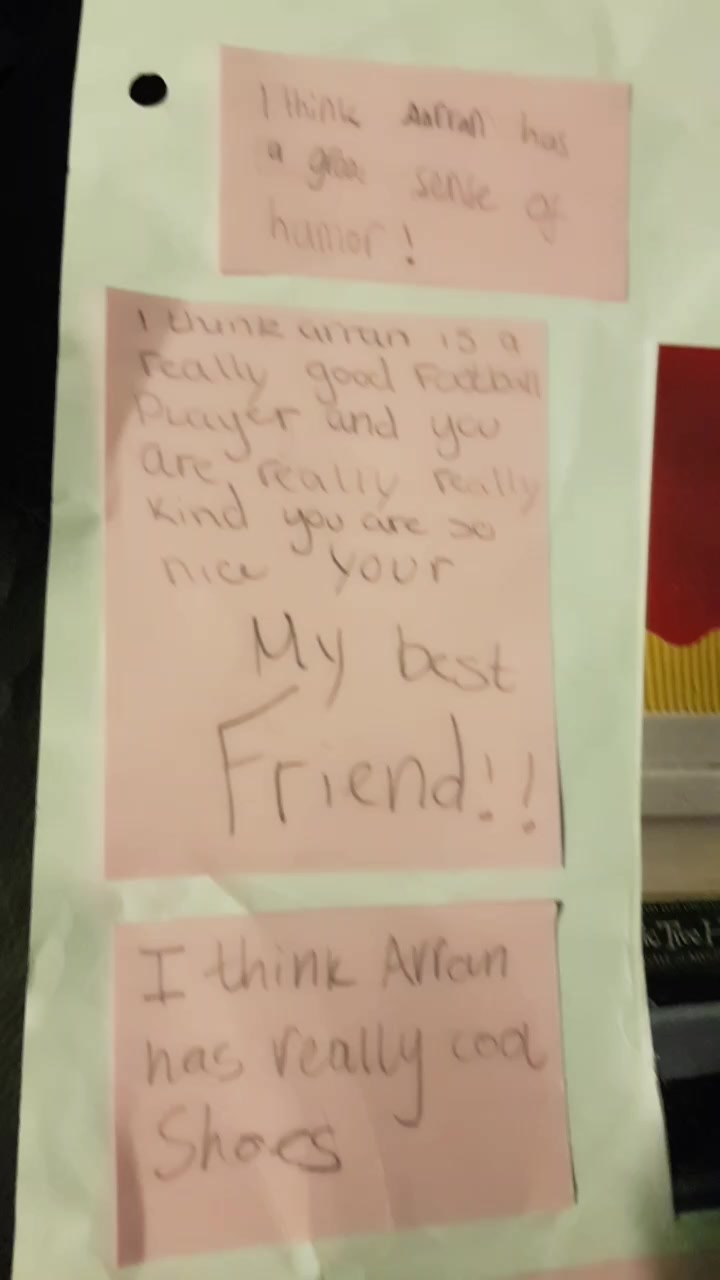 I think Arran has
a goo sense of
humor!
I think arran is a
really good Football
Prayer and you
are, really really
kind you are so
nice your
My best
Friend!!
I think Arran
has really cool
Shoes